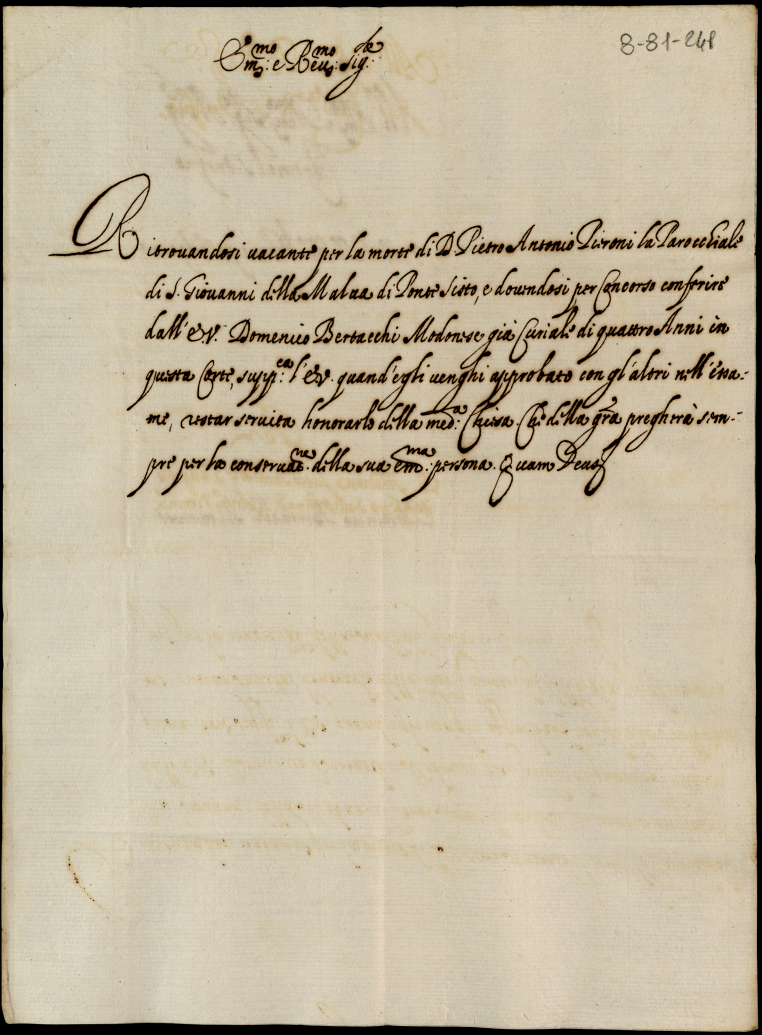 8-81-248
Em̃.mo e Reu.mo Sig.re
Ritrouandosi uacante per la morte di D. Pietro Antonio Pieroni la Parocchiale
di S. Giouanni della Malua di Ponte Sisto, e douendosi per Concorso conferire
dall' E.V. Domenico Bertacchi Modonese già Curiale di quattro Anni in
questa Corte, supp.ca l' E.V. quand' egli uenghi approbato con gl' altri nell' essa-
me, restar seruita honorarlo della med.a Chiesa. Che della gr̃a pregherà sem-
pre per la conseruat.ne della sua Em̃.ma persona. Quam Deus